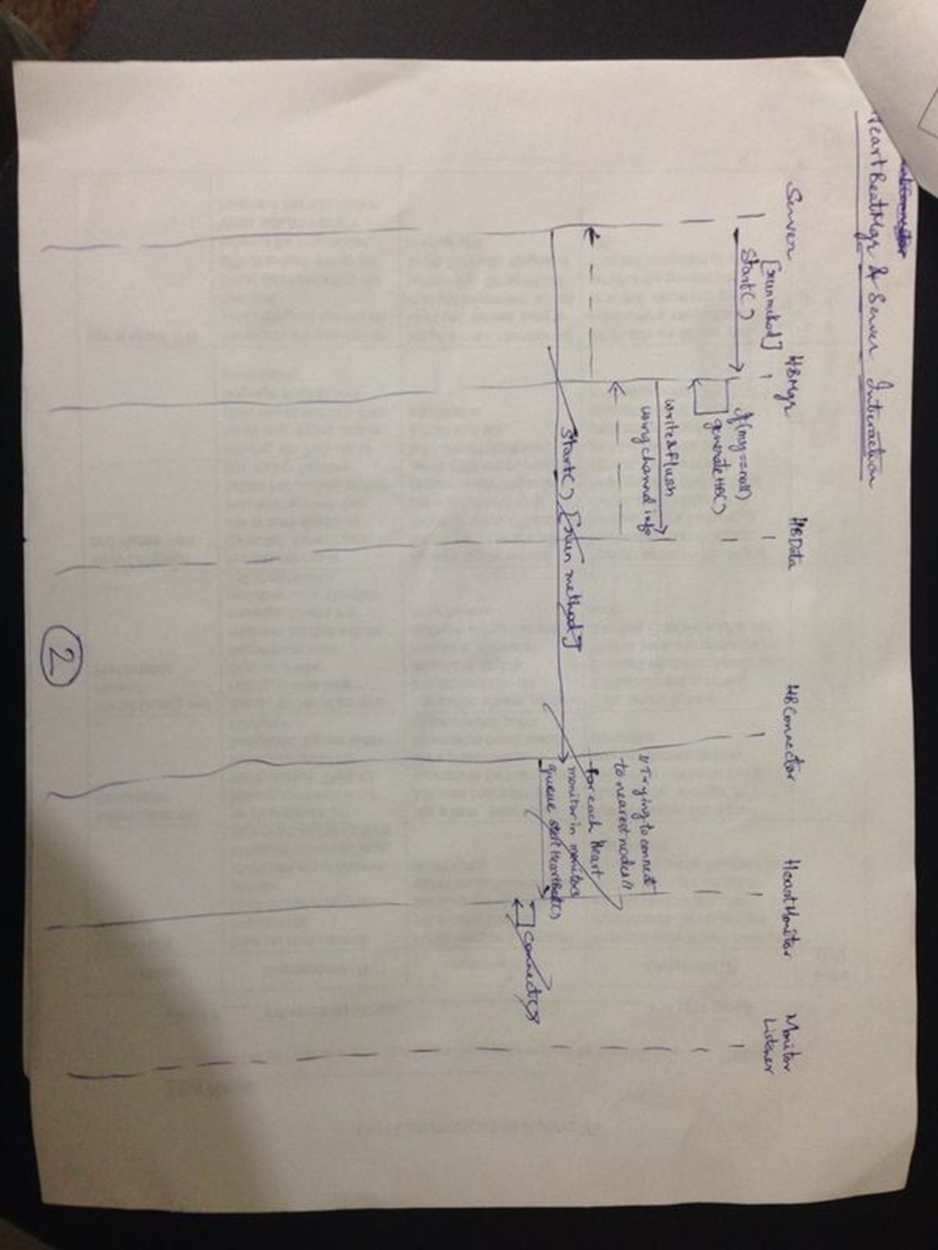 HeartBeatMgr & Server Interaction
Server
HBMgr
HBData
HBConnector
HeartMonitor
Monitor
Listener
[run method]
Start()
if(mgr=null)
generateHB()
write&flush
using channel info
Start() [run method]
"Trying to connect
to nearest nodes"
for each Heart
monitor in monitors
queue startHeartBeat()
connect()
2